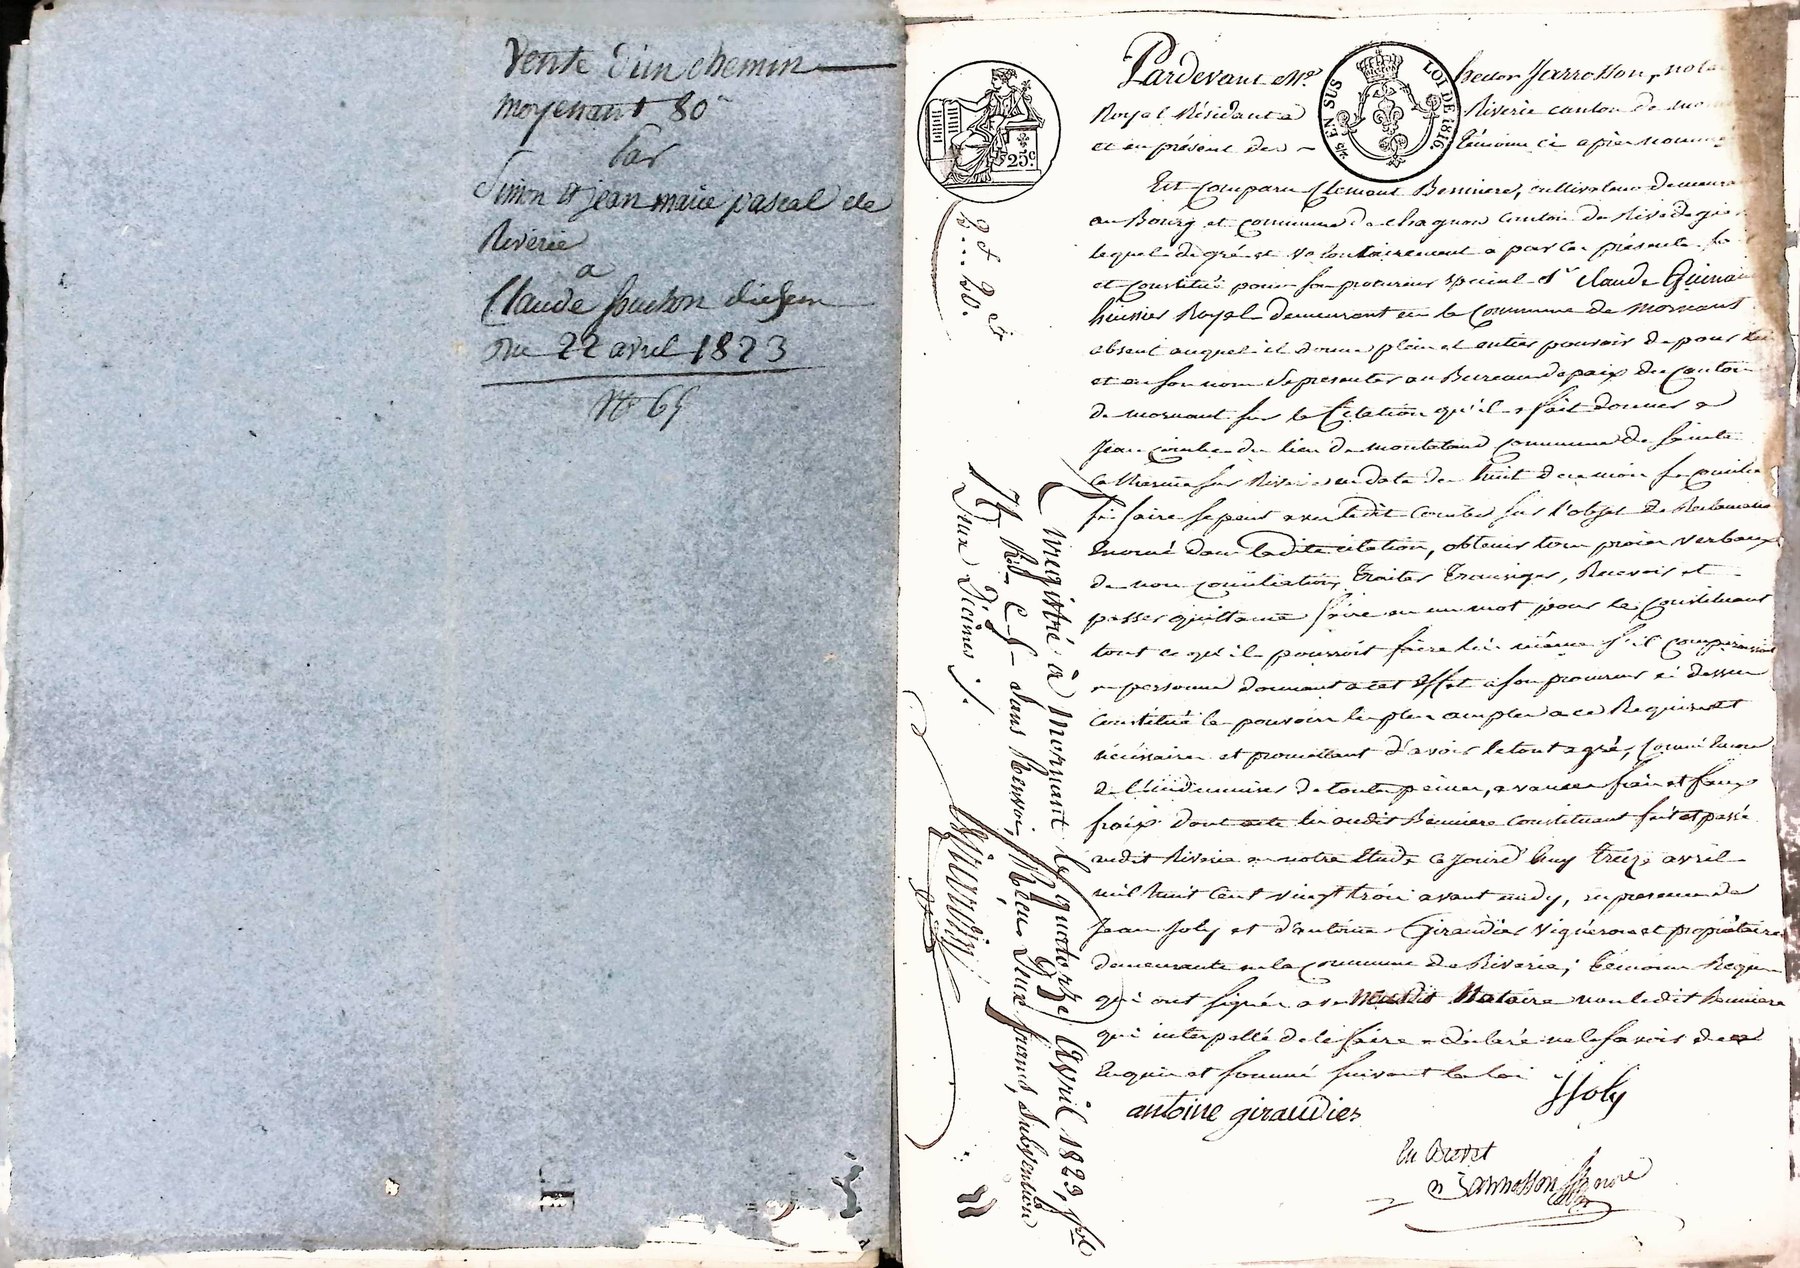 Vente d'un chemin
moyenant 80
Par
Simon et jean marie pascal de
Riverie
a
Claude
du 22 avril 1823
No 65
EN SUS
LOI DE 1816
25c
Pardevant Me hector Jarrosson, nota
Royal Résidant a Riverie canton de mor
et en présence des témoins ci après nommé
Est comparu Clémont Bonniere, cultivateur demeurant
au Bourg et commune de chagnon canton de Rive de gier
lequel de gré et volontairement a par ces présentes fa
et constitué pour son procureur spécial Sr Claude Guinan
huissier Royal demeurant en la Commune de Mornant
absent auquel il donne plein et entier pouvoir de pour lui
et en son nom se presenter au Bureau de paix du Canton
de mornant sur la Citation qu'il a fait donner a
Jean Combe du lieu de commune de Sainte
Catherine sur Riverie en date du huit de ce mois se concilier
si faire se peut avec ledit Combe sur l'objet de Reclamation
Enoncé dans la dite citation, obtenir tous procès verbaux
de non conciliation, traiter transiger, Recevoir et
passer quittance faire en un mot pour le Constituant
tout ce qu'il pourroit faire lui même s'il comparaissoit
en personne donnant a cet effet a son procureur ci dessus
constitué les pouvoirs les plus amples a ce Requis et
nécessaires et promettant d'avoir le tout agré, comme Encore
de l'indemniser de toutes peines, avances frais et faux
fraix dont acte audit Bonniere Constituant fait et passé
audit Riverie en notre Etude ce jourd'huy treize avril
mil huit cent vingt trois avant midy, en presence de
Jean Joly et d'antoine Giraudier vigneron et propriétaires
demeurants en la commune de Riverie, témoins Requis
qui ont signés avec Notaire non ledit Bonniere
qui interpellé de le faire a déclaré ne le savoir de ce
Enquis et sommé suivant la loi
antoine giraudier
JJoly
En Brevet
Jarrosson
2 f 2 c
20.
Enregistré à Mornant le quatorze Avril 1823, fo
76 Ro C. 5 sans Renvoi, Reçu deux francs, subvention
deux décimes